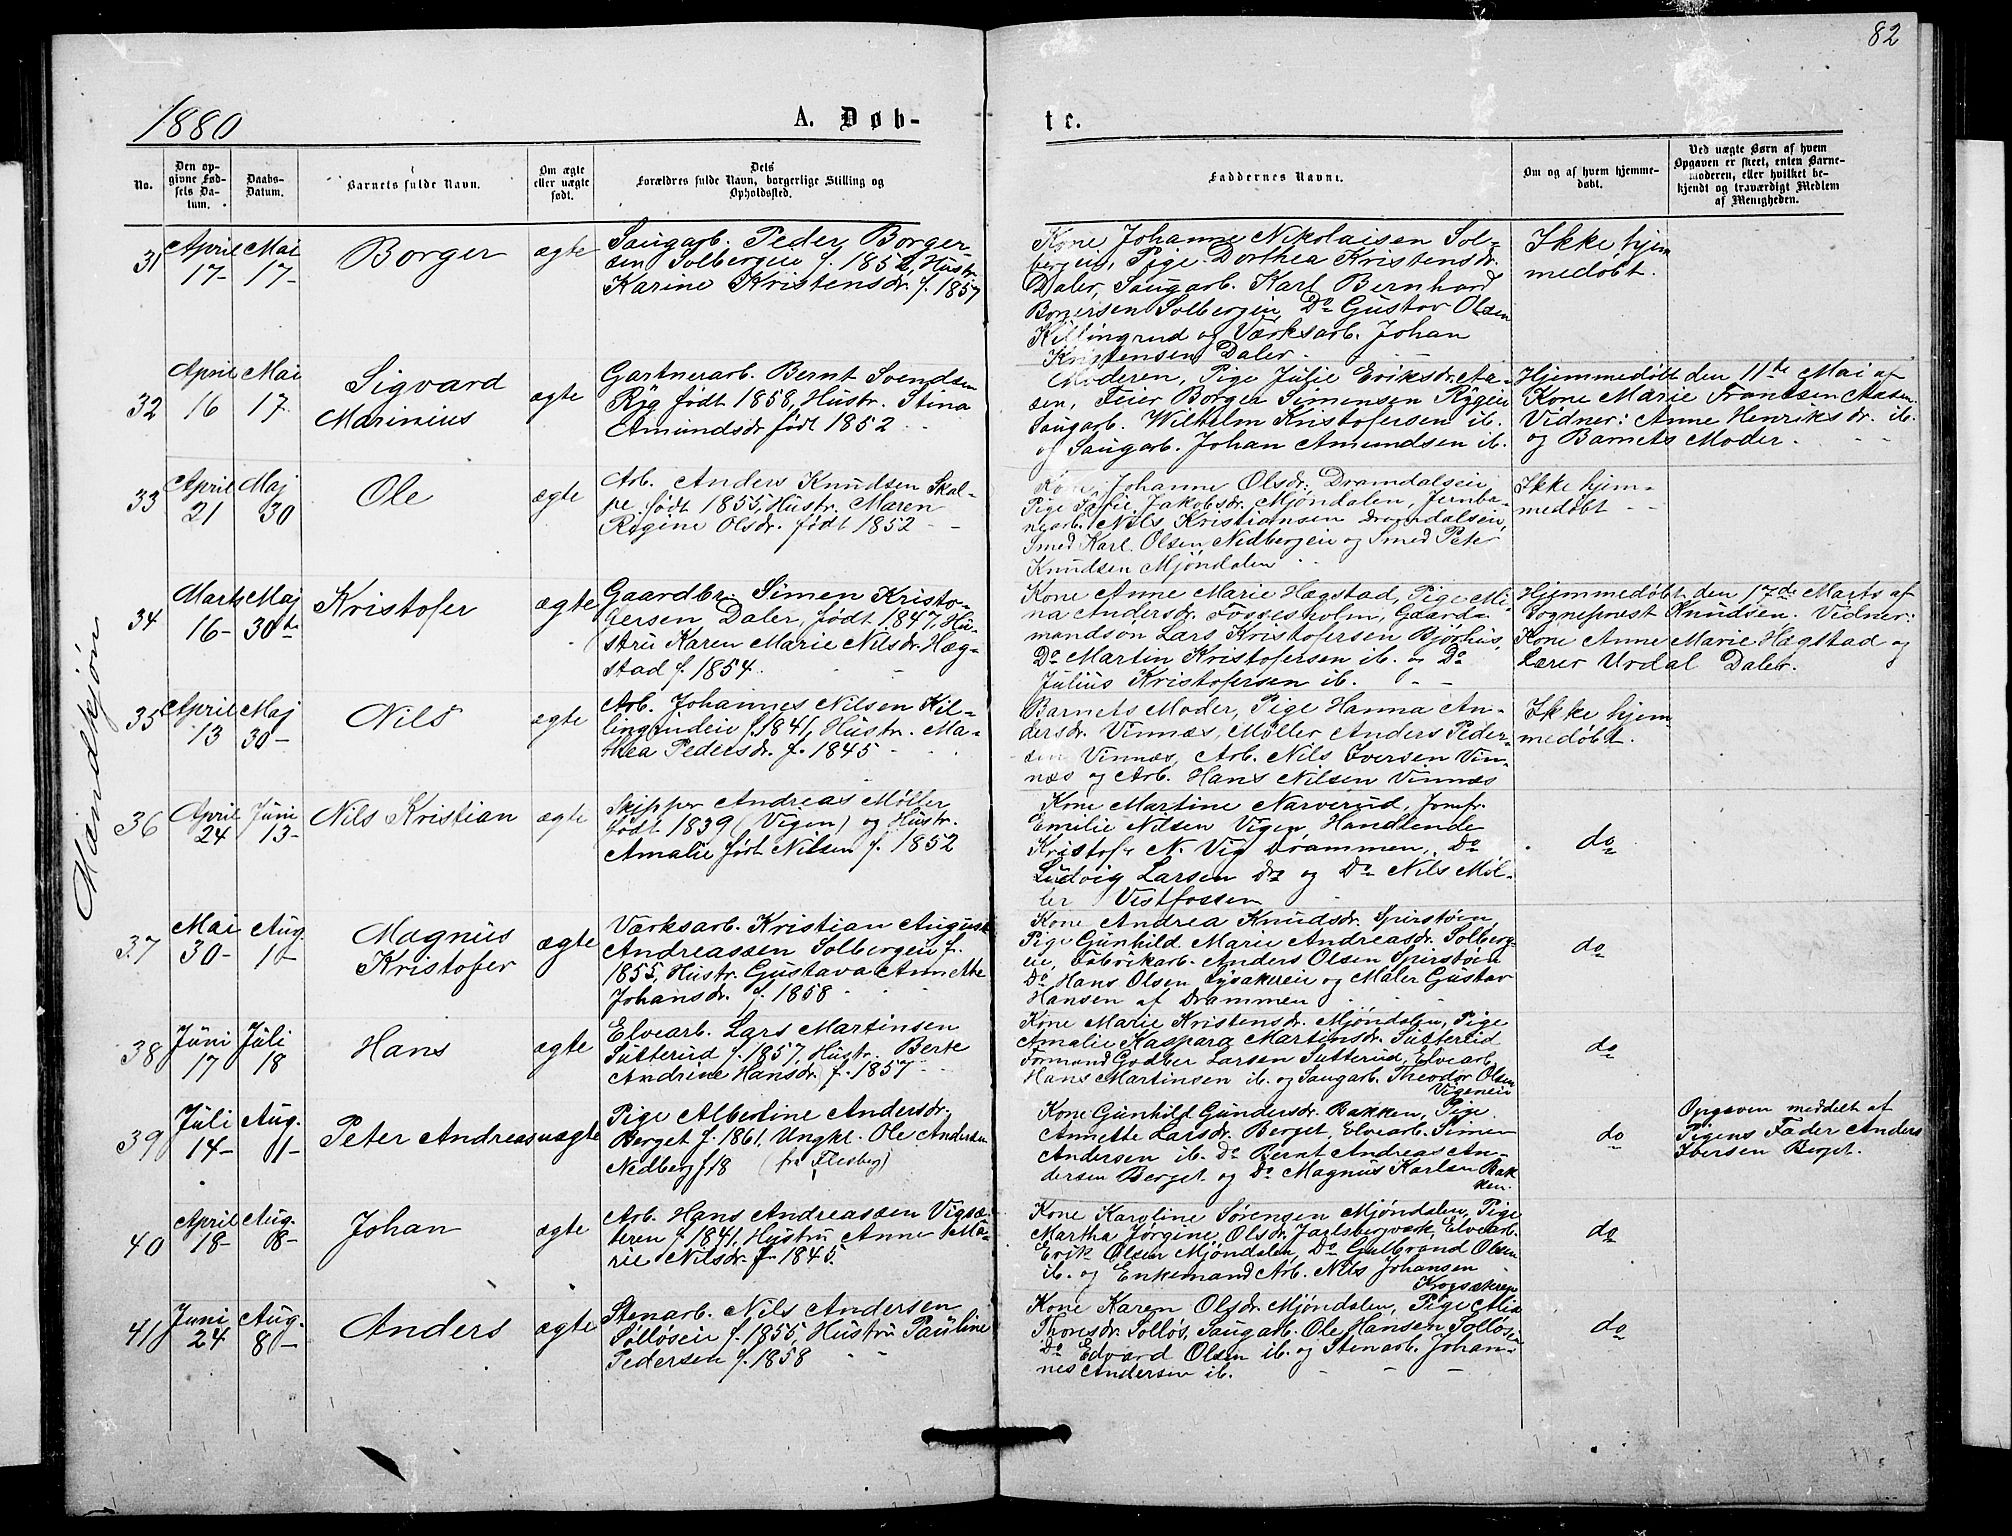 82
1880
A. Døb-
te.
No.
Den op-
givne Fød-
sels Da-
tum.
Daabs-
Datum.
Barnets fulde Navn.
Om ægte
eller uægte
født.
Dets
Forældres fulde Navn, borgerlige Stilling og
Opholdssted.
Faddernes Navne.
Om og af hvem hjemme-
døbt.
Ved uægte Børn af hvem
Opgaven er skeet, enten Barne-
moderen, eller hvilket be-
kjendt og troværdigt Medlem
af Menigheden.
Mandkjøn
31
April
17-
Mai
17-
Borger
ægte
Saugarb. Peder Borger-
sen Solbergeie f. 1852, Hustr.
Karine Kristensdr. f. 1857
Kone Johanne Nikolaisen Sol-
bergeie, Pige Dorthea Kristensdr.
Daler, Saugarb. Karl Bernhard
Borgersen Solbergeie, Do Gustav Olsen
Killingrud og Værksarb. Johan
Kristensen Daler.
Ikke hjem
medøbt.
32
April
16
Mai
17.
Sigvard
Marinius
ægte
Gartnerarb. Bernt Svendsen
Ryg født 1858, Hustr. Stina
Amundsdr født 1852
Moderen, Pige Julie Eriksdr. Aa-
sen, Feier Borger Simensen Rygeie
Saugarb. Wilhelm Kristofersen ib.
og Saugarb. Johan Amundsen ib.
Hjemmedøbt den 11te Mai af
Kone Marie Frantsen Aasen.
Vidner: Anne Henriksdr. ib.
og Barnets Moder.
33
April
21
Maj
30
Ole
ægte
Arb. Anders Knudsen Skal-
pe født 1855, Hustr. Maren
Regine Olsdr. født 1852
Kone Johanne Olsdr. Dramdalseie,
Pige Sofie Jakobsdr. Mjøndalen, Jernba-
nearb. Nils Kristiansen Dramdalseie,
Smed Karl Olsen Nedbergeie og Smed Peter
Knudsen Mjøndalen
Ikke hjem-
medøbt
34
Marts
16-
Maj
30te
Kristofer
ægte
Gaardbr. Simen Kristo-
fersen Daler, født 1847, Hu-
stru Karen Marie Nilsdr. Hæg-
stad f. 1854.
Kone Anne Marie Hægstad, Pige Mi-
na Andersdr. Fossesholm, Gaard-
mandsøn Lars Kristofersen Bjørhus,
Do Martin Kristofersen ib. og Do
Julius Kristofersen ib.
Hjemmedøbt den 17de Marts af
Sognepræst Knudsen. Vidner:
Kone Anne Marie Hægstad og
Lærer Urdal Daler.
35
April
13
Maj
30-
Nils
ægte
Arb. Johannes Nilsen Kil-
lingrudeie f. 1841, Hustr. Ma-
thea Pedersdr. f. 1845
Barnets Moder, Pige Hanna An-
dersdr. Vinnæs, Møller Anders Peder-
sen Vinnæs, Arb. Nils Iversen Vin-
næs og Arb. Hans Nilsen Vinnæs
Ikke hjem
medøbt.
36
April
24
Juni
13-
Nils Kristian
ægte
Skipper Andreas Møller
født 1839 (Vigen) og Hustr.
Amalie født Nilsen f. 1852
Kone Martine Narverud, Jomfr.
Emilie Nilsen Vigen, Handlende
Kristofr N. Vig Drammen, Do
Ludvig Larsen do og Do Nils Møl-
ler Vistfossen
do
37
Mai
30-
Aug.
1-
Magnus
Kristofer
ægte
Værksarb. Kristian August
Andreassen Solbergeie f.
1855, Hustr. Gustava Annette
Johansdr. f. 1858
Kone Andrea Knudsdr. Spirstøen,
Pige Gunhild Marie Andreasdr. Solberg-
eie, Fabrikarb. Anders Olsen Spirstøen
Do Hans Olsen Lysakereie og Maler Gustav
Hansen af Drammen
do
38
Juni
17
Juli
18
Hans
ægte
Elvearb. Lars Martinsen
Sutterud f. 1857, Hustr. Berte
Andrine Hansdr. f. 1857
Kone Marie Kristensdr. Mjøndalen, Pige
Amalie Kaspara Martinsdr. Sutterud
Formand Godber Larsen Sutterud, Elvearb.
Hans Martinsen ib. og Saugarb. Theodor Olsen
Vigeneie
do
39
Juli
14-
Aug.
1-
Peter Andreas
uægte
Pige Albertine Andersdr.
Berget f. 1861. Ungkl. Ole Andersen
Nedberg f 18 (fra Flesberg)
Kone Gunhild Gundersdr. Bakken, Pige
Annette Larsdr. Berget, Elvearb. Simen
Andersen ib. Do Bernt Andreas An-
dersen Berget og Do Magnus Karlsen Bak
ken.
do
Opgaven meddelt af
Pigens Fader Anders
Iversen Berget.
40
April
18-
Aug.
8-
Johan
ægte
Arb. Hans Andreassen Vigsæ-
teren f. 1841, Hustru Anne Ma-
rie Nilsdr. f. 1845.
Kone Karoline Sørensen Mjøndalen, Pige
Martha Jørgine Olsdr. Jarlsbergværk, Elvearb.
Erik Olsen Mjøndalen, Do Gulbrand Olsen
ib. og Enkemand Arb. Nils Johansen
Krogsakren
do
41
Juni
24
Aug.
8-
Anders
ægte
Stenarb. Nils Andersen
Solløseie f. 1855, Hustru Pauline
Pedersen f. 1858
Kone Karen Olsdr. Mjøndalen, Pige
Thorsdr. Solløs, Saugarb. Ole Hansen Solløs,
Do Edvard Olsen ib. og Stenarb. Johan-
nes Andersen ib.
do